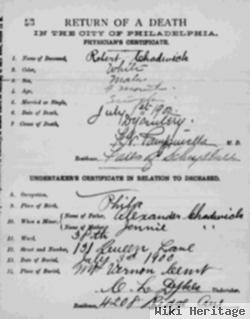 RETURN OF A DEATH
IN THE CITY OF PHILADELPHIA.
PHYSICIAN'S CERTIFICATE.
1. Name of Deceased, Robert Chadwick
2. Color, White
3. Sex, Male
4. Age, month
5. Married or Single,
6. Date of Death, July 1st 1900
7. Cause of Death, Dysentery
M. D.
Residence, Falls of Schuylkill
UNDERTAKER'S CERTIFICATE IN RELATION TO DECEASED.
8. Occupation,
9. Place of Birth, Phila
10. When a Minor, Name of Father, Alexander Chadwick
Name of Mother, Jennie
11. Ward, 38th
12. Street and Number, 131 Lane
13. Date of Burial, July 3rd 1900
14. Place of Burial, Mt Vernon Cemt
Undertaker.
Residence, 4208 Ridge Ave
Wiki Heritage